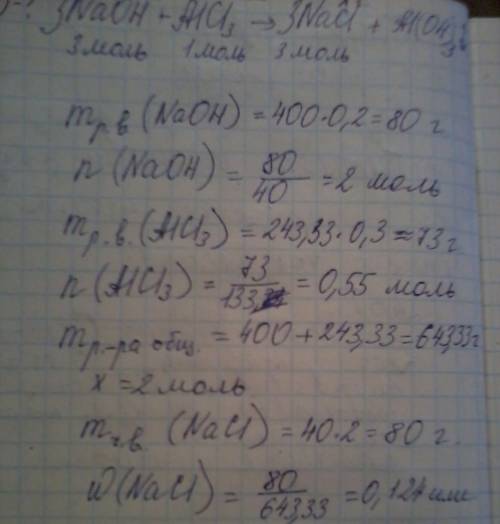 3NaOH + AlCl₃ → 3NaCl + Al(OH)₃↓
3 моль 1 моль 3 моль
m р.в (NaOH) = 400·0,2 = 80 г
n (NaOH) = 80/40 = 2 моль
m р.в. (AlCl₃) = 243,33·0,3 ≈ 73 г
n (AlCl₃) = 73/133, = 0,55 моль
m р-ра общ. = 400 + 243,33 = 643,33 г
x = 2 моль
m ч.в. (NaCl) = 40·2 = 80 г.
W (NaCl) = 80/643,33 = 0,124 или